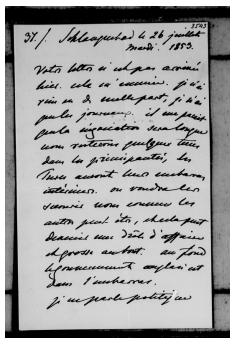 2543
37./ Schlangenbad le 26 juillet
mardi, 1853.
Votre lettre n'est pas arrivée
hier. cela m'ennuie. je n'ai
rien eu de nulle part, je n'ai
que les journaux. il me parait
que la négociation sera longue
nous resterons quelque tems
dans les principautés, les
Turcs auront leurs embarras
intérieurs. on voudra les
secourir nous comme les
autres peut être, et cela peut
devenir une drôle d'affaire
et grosse au bout. au fond
le gouvernement anglais est
dans l'embarras.
je vous parle politique